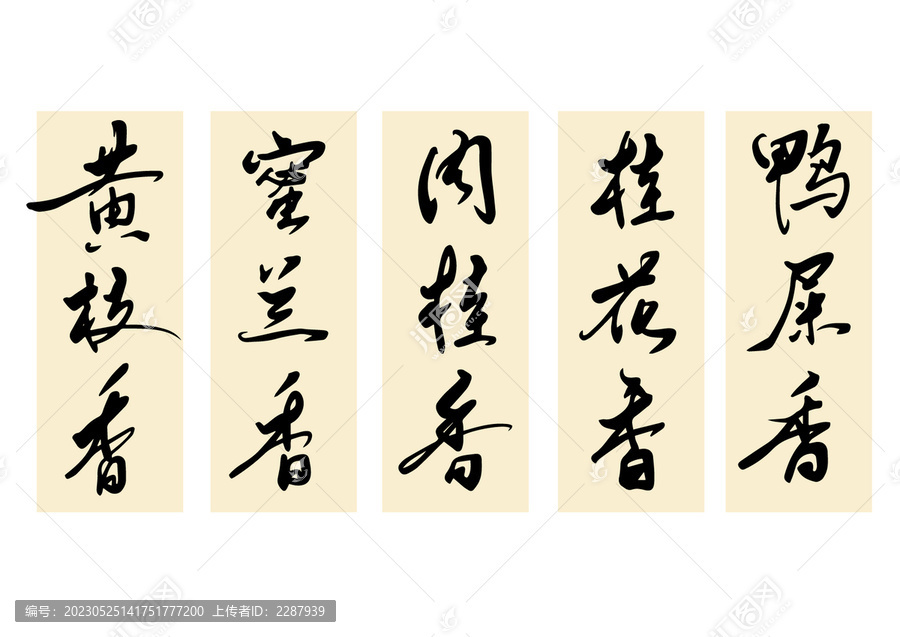 黄枝香
蜜兰香
肉桂香
桂花香
鸭屎香
编号：20230525141751777200 上传者ID：2287939